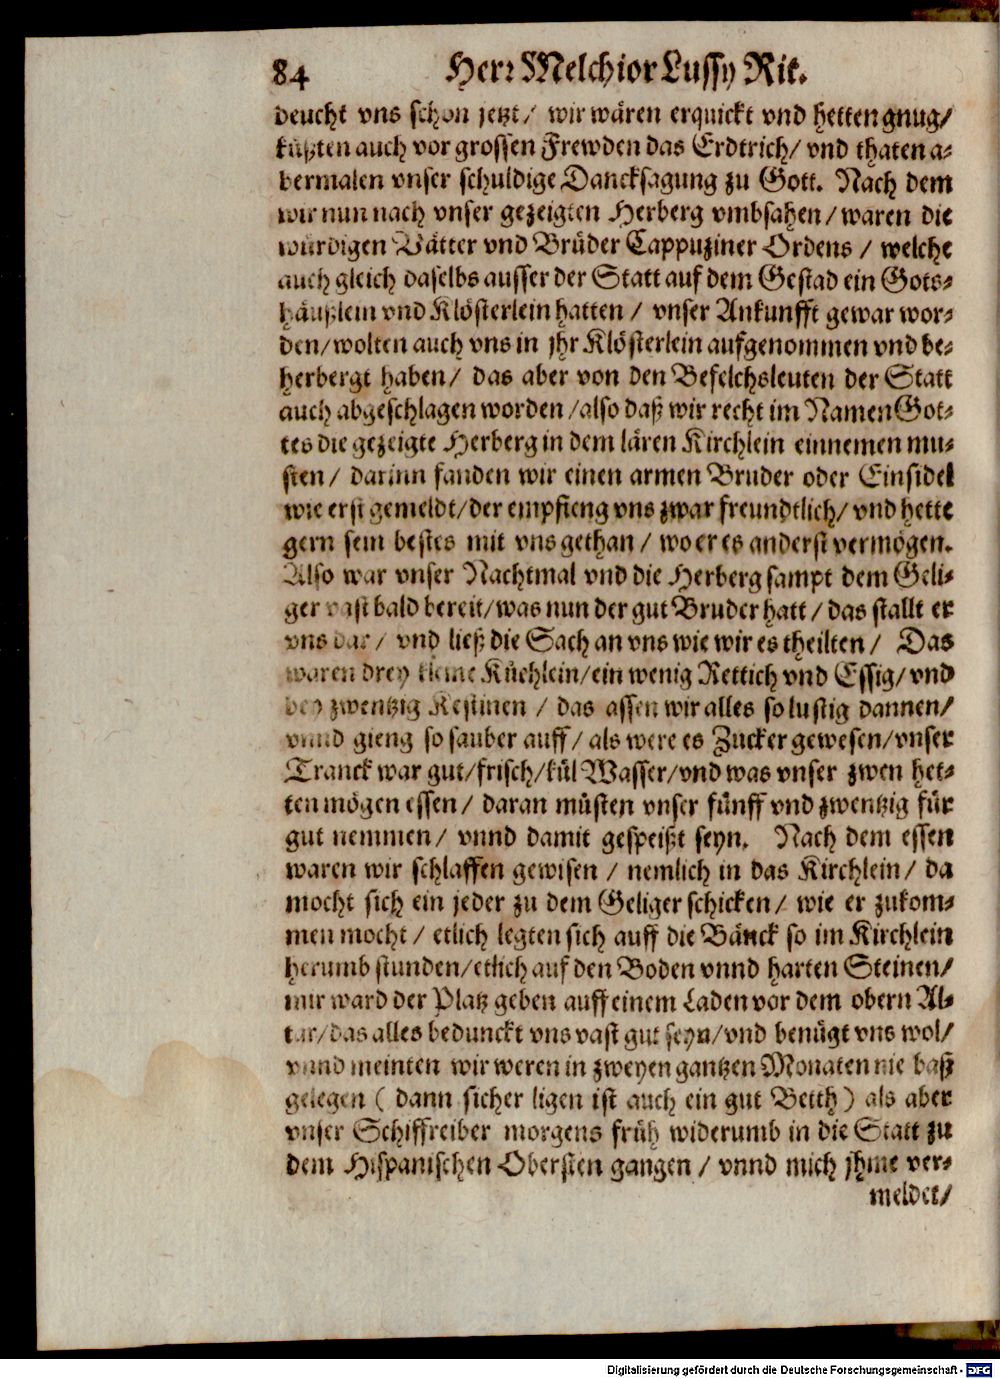 84 Herr Melchior Lussy Rit.
deucht vns schon jetzt/ wir wären erquickt vnd hetten gnug/
küßten auch vor grossen Frewden das Erdtrich/ vnd thaten a-
bermalen vnser schuldige Dancksagung zu Gott. Nach dem
wir nun nach vnser gezeigten Herberg vmbsahen/ waren die
würdigen Vätter vnd Brüder Cappuziner Ordens / welche
auch gleich daselbs ausser der Statt auf dem Gestad ein Gots-
häußlein vnd Klösterlein hatten / vnser Ankunfft gewar wor-
den/ wolten auch vns in jhr Klösterlein aufgenommen vnd be-
herbergt haben/ das aber von den Befelchsleuten der Statt
auch abgeschlagen worden /also daß wir recht im Namen Got-
tes die gezeigte Herberg in dem lären Kirchlein einnemen mu-
sten/ darinn fanden wir einen armen Bruder oder Einsidel
wie erst gemeldt/ der empfieng vns zwar freundtlich/ vnd hette
gern sein bestes mit vns gethan / wo er es anderst vermögen.
Also war vnser Nachtmal vnd die Herberg sampt dem Geli-
ger vast bald bereit/ was nun der gut Bruder hatt / das stallt er
vns dar/ vnd ließ die Sach an vns wie wir es theilten / Das
waren drey kleine Küchlein/ ein wenig Rettich vnd Essig/ vnd
bey zwentzig Kestinen / das assen wir alles so lustig dannen/
vnnd gieng so sauber auff/ als were es Zucker gewesen/ vnser
Tranck war gut/ frisch/ kül Wasser/ vnd was vnser zwen het-
ten mögen essen/ daran müsten vnser fünff vnd zwentzig für
gut nemmen/ vnnd damit gespeißt seyn. Nach dem essen
waren wir schlaffen gewisen / nemlich in das Kirchlein/ da
mocht sich ein jeder zu dem Geliger schicken/ wie er zukom-
men mocht / etlich legten sich auff die Bänck so im Kirchlein
herumb stunden/ etlich auf den Boden vnnd harten Steinen/
mir ward der Platz geben auff einem Laden vor dem obern Al-
tar/ das alles bedunckt vns vast gut seyn/ vnd benügt vns wol/
vnnd meinten wir weren in zweyen gantzen Monaten nie baß
gelegen ( dann sicher ligen ist auch ein gut Betth ) als aber
vnser Schiffreiber morgens früh widerumb in die Statt zu
dem Hispanischen Obersten gangen / vnnd mich jhme ver-
meldet/
Digitalisierung gefördert durch die Deutsche Forschungsgemeinschaft - DFG